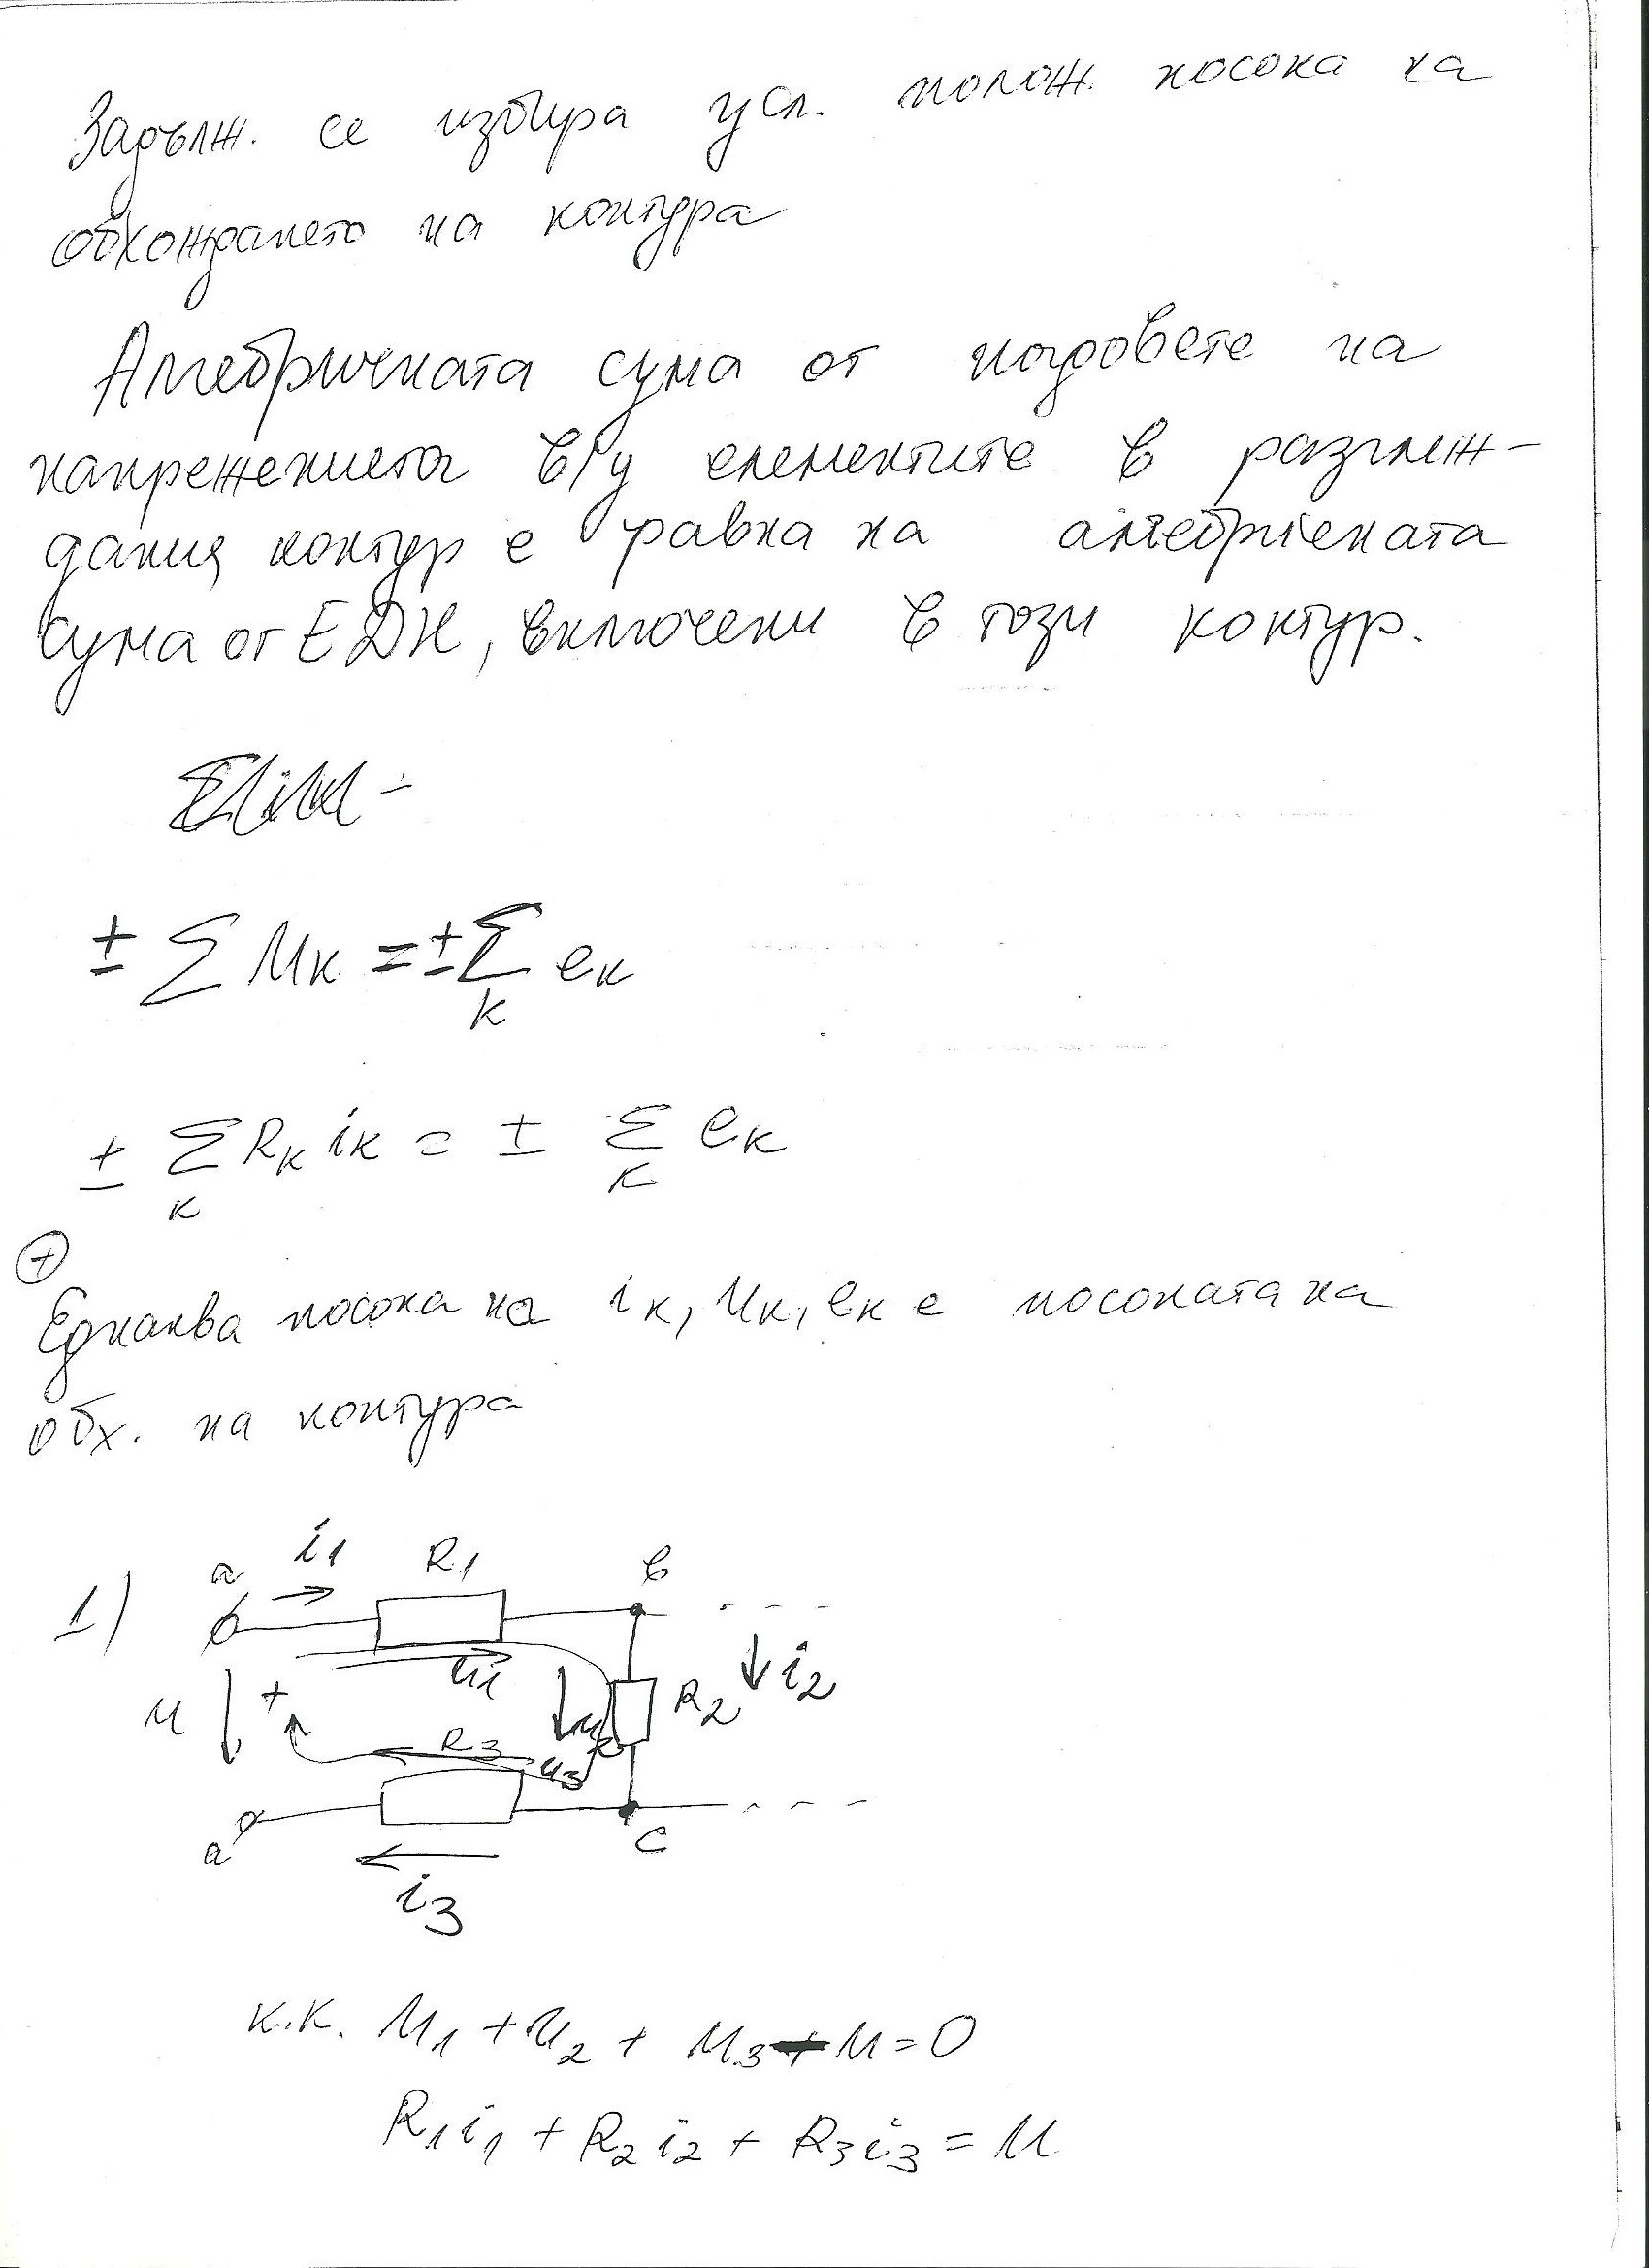 Задълж. се избира усл. полож. посока на
обхождането на контура
Алгебричната сума от падовете на
напрежението в/у елементите в разглеж-
дания контур е равна на алгебричната
сума от ЕДН, включени в този контур.
± Σ Uк = ± Σ eк
к
± Σ Rк iк = ± Σ eк
к к
+
Еднаква посока на iк, Uк, eк е посоката на
обх. на контура
1)
a i1 R1 в
u1
U + u2 R2 i2
R3 u3
a' c
i3
к.к. U1 + U2 + U3 - U = 0
R1i1 + R2i2 + R3i3 = U